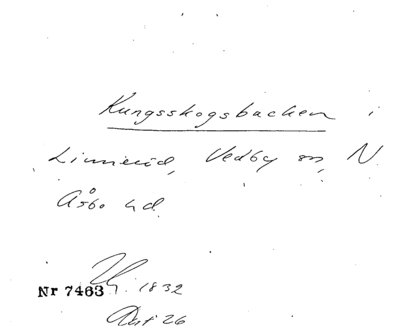 Kungsskogsbacken i
Linneröd, Vedby sn, N.
Åsbo hd.
Nr 7463
1832
Akt 26